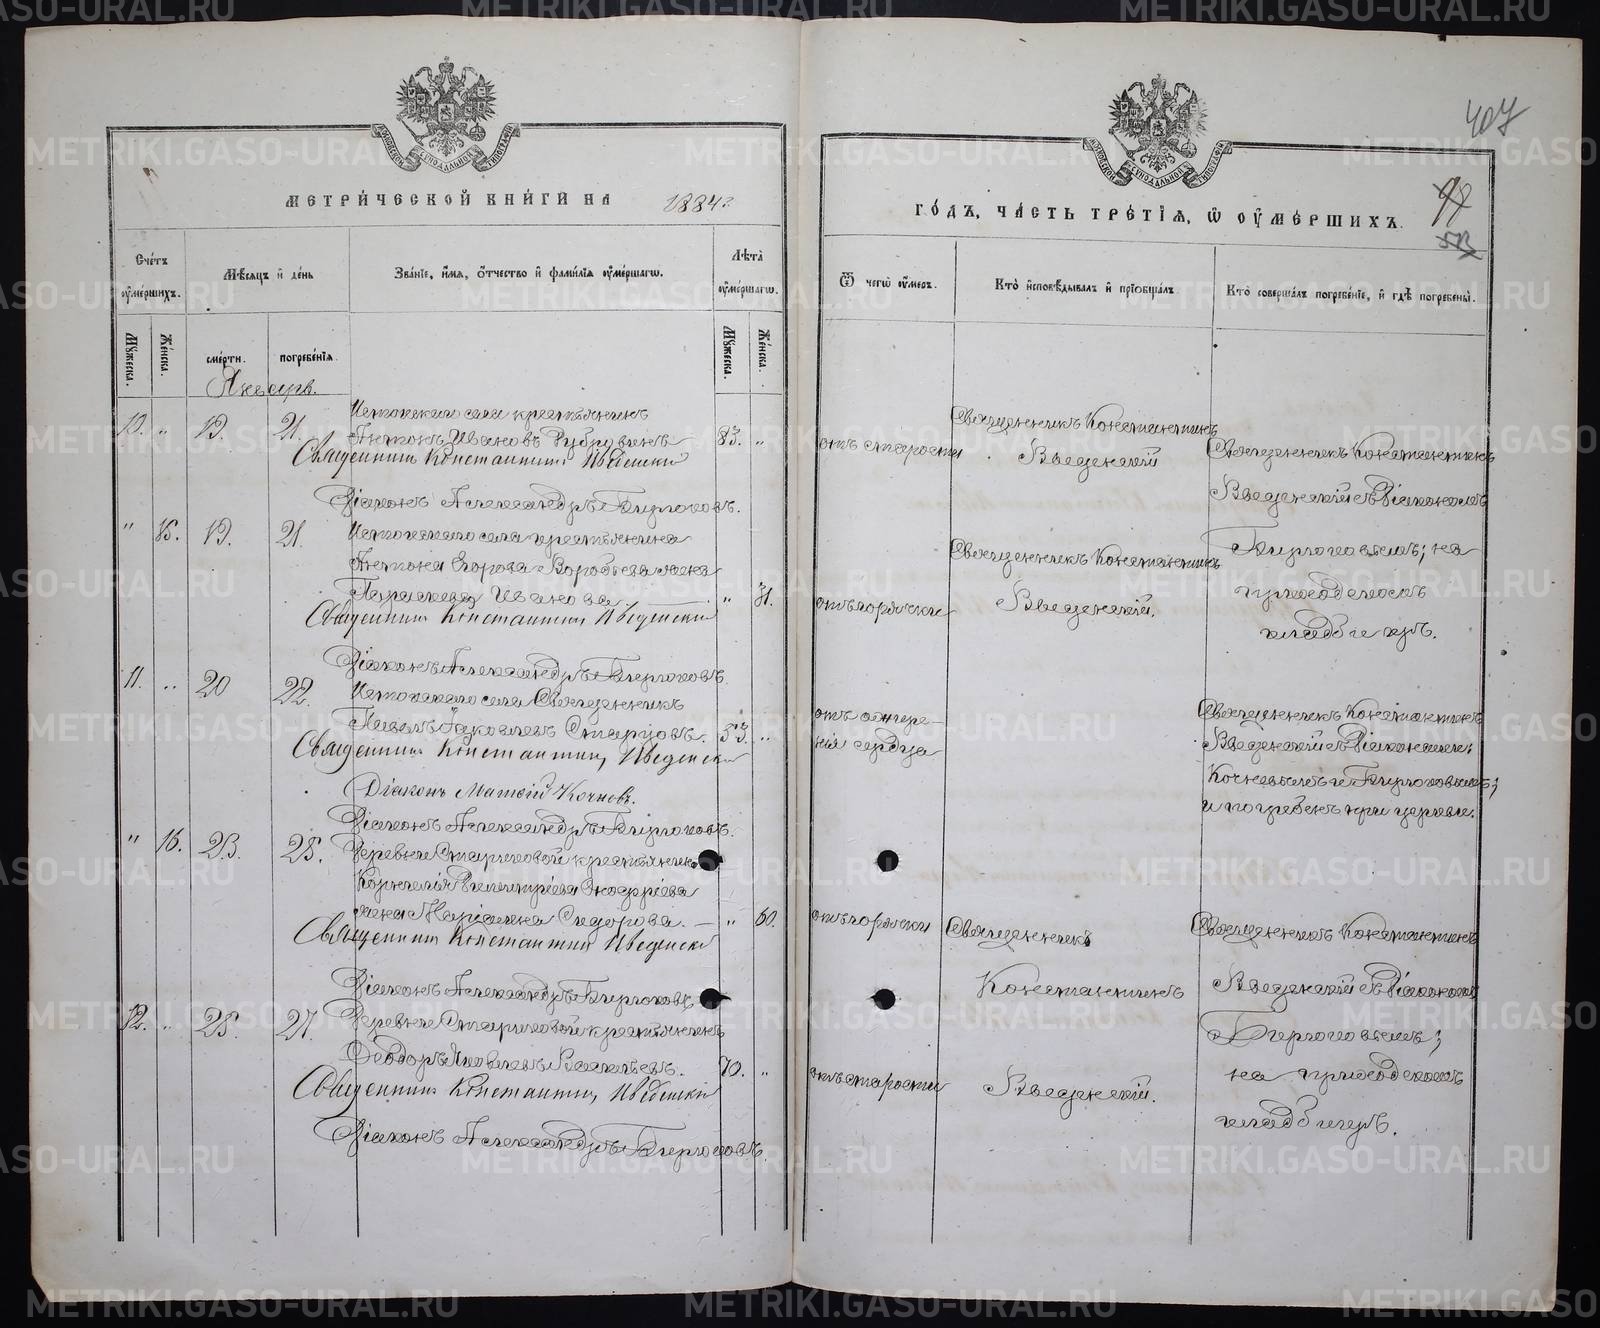 МЕТРИ́ЧЕСКОЙ КНИ́ГИ НА 1884 г.
Сче́тъ ѹ҆ме́ршихъ.
Мѣ́сяцъ и҆ де́нь
Зва́нїе, и҆́мя, ѻ҆́тчество и҆ фами́лїя ѹ҆ме́ршагѡ.
Лѣ́та ѹ҆ме́ршагѡ.
Мꙋ́жеска.
Же́нска.
сме́рти.
погребе́нїя.
Мꙋ́жеска.
Же́нска.
Январь.
10. " 19. 21.
крестьянинъ
Антонъ Ивановъ
83. "
Священникъ Константинъ Введенскій
Діаконъ Александръ Бирюковъ.
" 15. 19. 21.
села крестьянина
Антона Егорова Воробьева жена
Параскева Иванова " 31.
Священникъ Константинъ Введенскій
Діаконъ Александръ Бирюковъ.
11. " 20 22.
села Священникъ
Павелъ Яковлевъ Старцовъ. 53. "
Священникъ Константинъ Введенскій
Діаконъ Матвій Кочневъ.
Діаконъ Александръ Бирюковъ.
" 16. 23. 25.
Деревни Стариковой крестьянина
Корнилія Димитріева
жена Маріамна Сидорова. — " 60.
Священникъ Константинъ Введенскій
Діаконъ Александръ Бирюковъ
12. " 25. 27.
Деревни Стариковой крестьянинъ
Ѳеодоръ Васильевъ. 70. "
Священникъ Константинъ Введенскій
Діаконъ Александръ Бирюковъ.
407
ГО́ДЪ, ЧА́СТЬ ТРЕ́ТЇЯ, Ѡ҆ ОУ҆МЕ́РШИХЪ.
Ѿ чегѡ̀ ѹ҆́меръ.
Кто̀ и҆сповѣ́дывалъ и҆ прїѡбща́лъ.
Кто̀ соверша́лъ погребе́нїе, и҆ гдѣ̀ погребены̀.
отъ старости
Священникъ Константинъ
Введенскій
Священникъ Константинъ
Введенскій съ Діакономъ
Бирюковымъ; на
приходскомъ
кладбищѣ.
отъ горячки
Священникъ Константинъ
Введенскій.
отъ ожире-
нія сердца
Священникъ Константинъ
Введенскій съ Діаконами:
Кочневымъ и Бирюковымъ;
и погребенъ при церкви.
отъ горячки
Священникъ
Константинъ
Введенскій.
Священникъ Константинъ
Введенскій съ Діакономъ
Бирюковымъ;
на приходскомъ
кладбищѣ.
отъ старости
METRIKI.GASO-URAL.RU